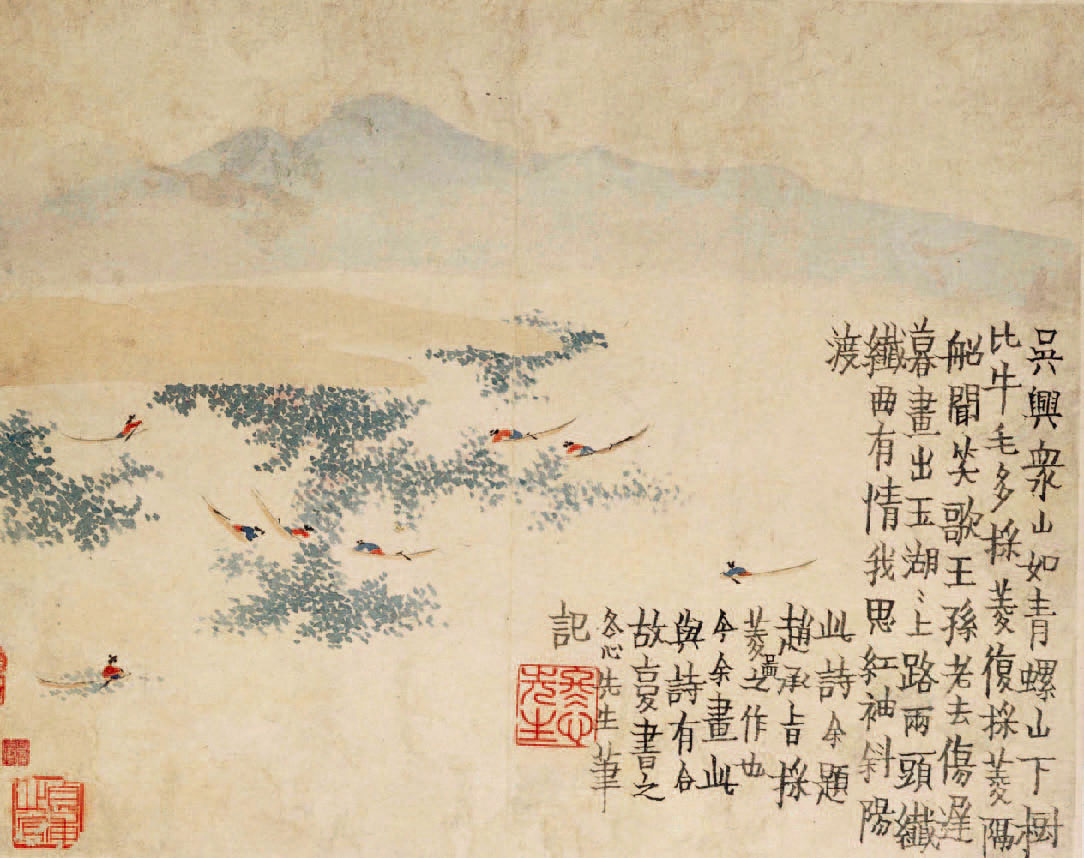 吳興衆山如青螺山下樹
比牛毛多採菱復採菱隔
船聞笑歌王孫老去傷遲
暮畫出玉湖〻上路兩頭纖
纖曲有情我思紅袖斜陽
渡
此詩余題
趙承旨採
菱圖之作也
今余畫此
與詩有合
故書之
冬心先生筆
記
冬心先生